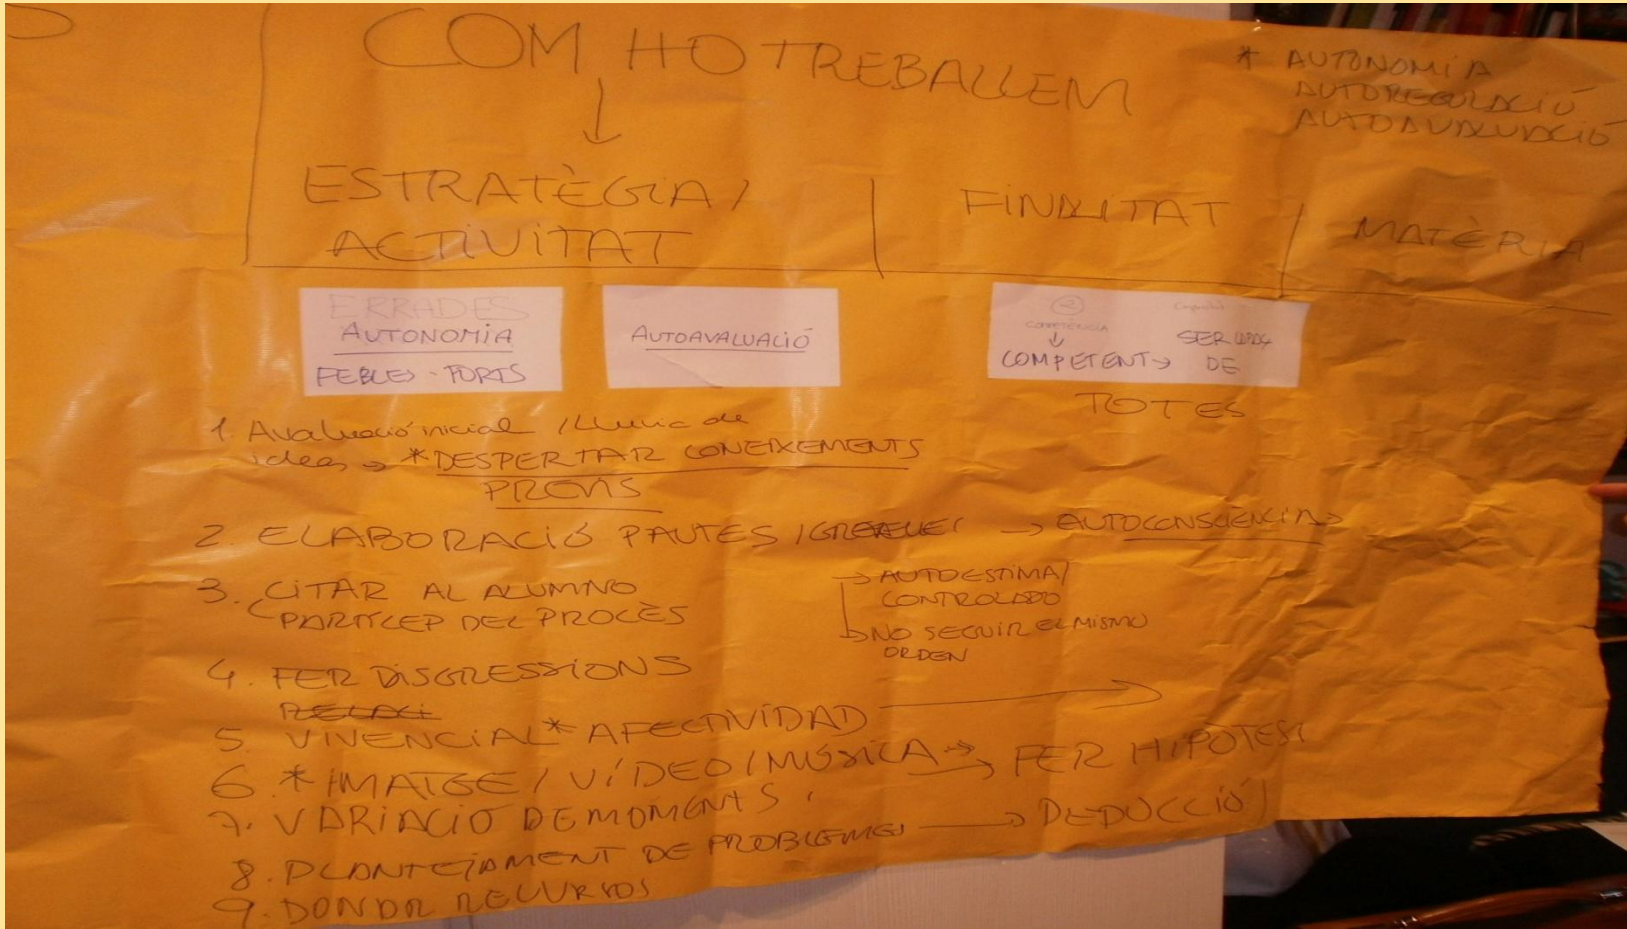 COM HO TREBALLEM
* AUTONOMIA
AUTOREGULACIÓ
AUTOAVALUACIÓ
ESTRATÈGIA /
ACTIVITAT
FINALITAT
MATÈRIA
ERRADES
AUTONOMIA
FEBLES - FORTS
AUTOAVALUACIÓ
2
COMPETÈNCIA
↓
COMPETENT →
SER CAPAÇ
DE
TOTES
1. Avaluació inicial / Pluja de
idees → * DESPERTAR CONEIXEMENTS
PREVIS
2. ELABORACIÓ PAUTES / → AUTOCONSCIENCIA
3. CITAR AL ALUMNO
PARTICEP DEL PROCÈS
→ AUTOESTIMA /
CONTROLADO
→ NO SEGUIR EL MISMO
ORDEN
4. FER DISGRESSIONS
5. VIVENCIAL * AFECTIVIDAD →
6. * IMATGE / VÍDEO / MÚSICA → FER HIPÒTESI
7. VARIACIÓ DE MOMENTS
8. PLANTEJAMENT DE PROBLEMES → DEDUCCIÓ
9. DONAR RECURSOS